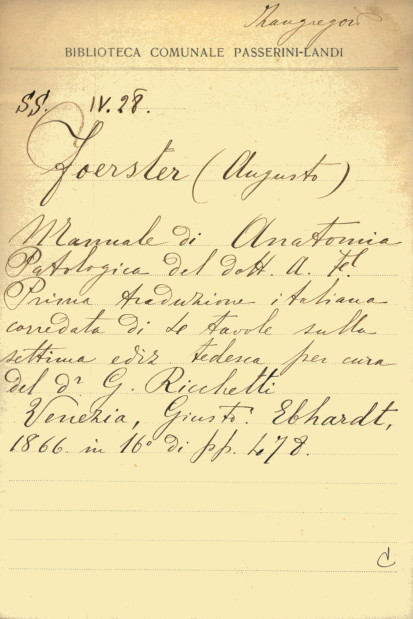 BIBLIOTECA COMUNALE PASSERINI-LANDI
SS. IV. 28.
Foerster (Augusto)
Manuale di Anatomia
Patologica del dott. A. F.
Prima traduzione italiana
corredata di 4 tavole sulla
settima ediz. tedesca per cura
del dr G. Ricchetti
Venezia, Giusto. Ebhardt,
1866. in 16° di pp. 478.